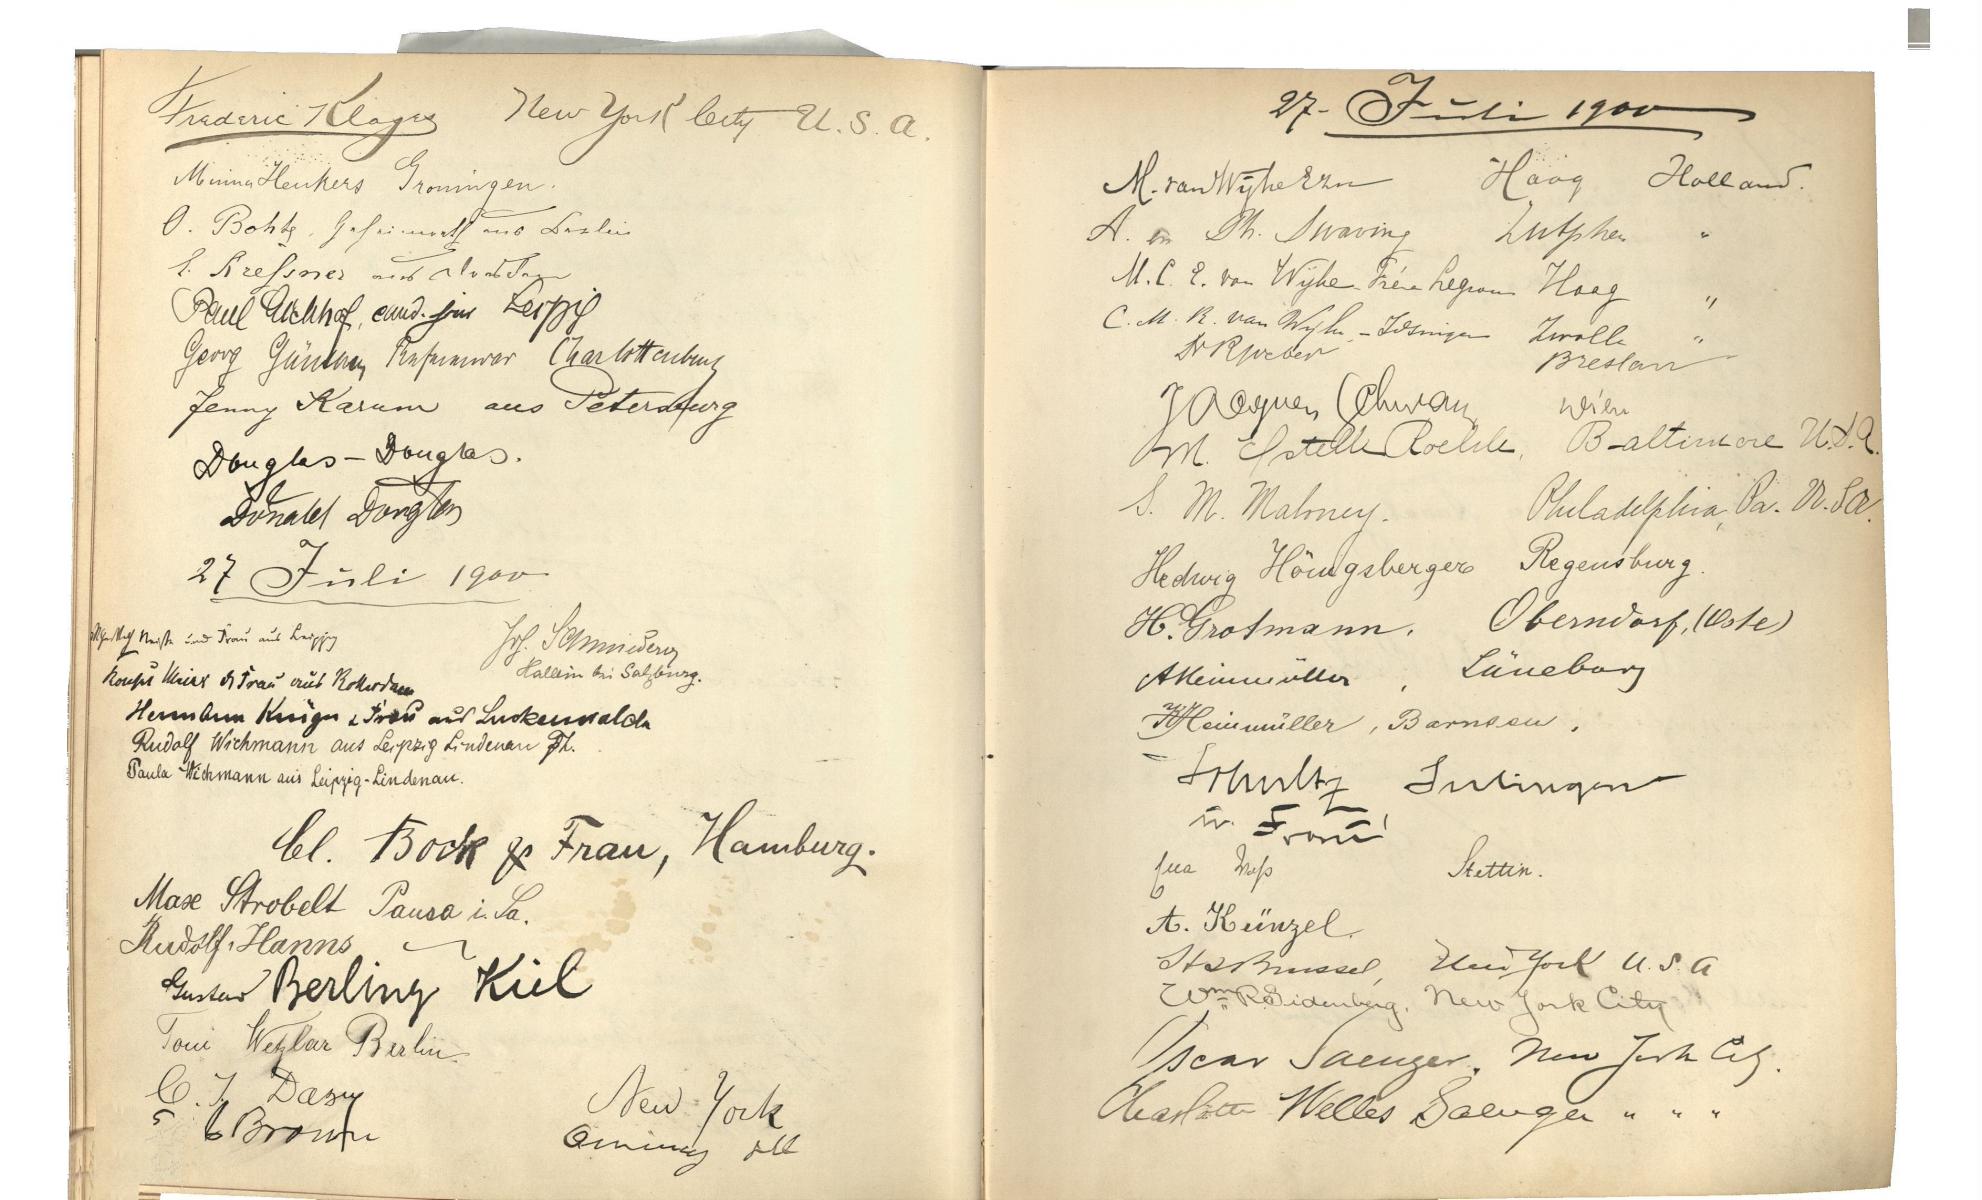 Frederic Klages New York City U.S.A.
Minna Henkers Groningen.
O. Bohtz, Geheimrath aus Berlin
E. Kressner aus
Paul Eichhof, cand. jur. Leipzig
Georg Günther, Referendar Charlottenburg
Jenny Karum aus Petersburg
Douglas - Douglas.
Donald Douglas
27 Juli 1900
und Frau aus Leipzig
Jos. Schmiederer
Hallein bei Salzburg.
& Frau aus Rotterdam
Hermann Krüger & Frau aus Luckenwalde
Rudolf Wichmann aus Leipzig Lindenau Th.
Paula Wichmann aus Leipzig-Lindenau.
Cl. Bock & Frau, Hamburg.
Max Strobelt Pausa i. Sa.
Rudolf, Hanns
Gustav Berling Kiel
Toni Wetzlar Berlin
C. J. Dasy New York
Brown
27- Juli 1900
M. van Wyhe Ezn Haag Holland.
A. en Ph. Swaving Zutphen "
M. C. E. van Wyhe Haag "
C. M. R. van Wyhe - Zwolle "
Dr R Weber Breslau
Jacques Schwarz Wien
M. Estelle Roehle, Baltimore U.S.A.
S. M. Maloney. Philadelphia, Pa. U.S.A.
Hedwig Hönigsberger Regensburg.
H. Grotmann. Oberndorf, (Oste)
A Heinmüller, Lüneburg
Heinmüller, Barnsen.
Schultz Sulingen
u. Frau
Stettin.
A. Künzel.
Brussel, New York U.S.A
Wm R Seidenberg, New York City
Oscar Saenger. New York City.
Charlotte Welles Saenger " " "